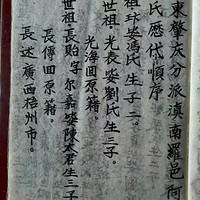 東肇庆分派滇南羅邑何
氏歷代順序
祖玟姿馮氏生子二。
世祖 光表姿劉氏生三子。
光海囬原籍。
世祖 長貽字尔嘉姿陳太君生三子
長傅囬原籍。
長述廣西梧州市。